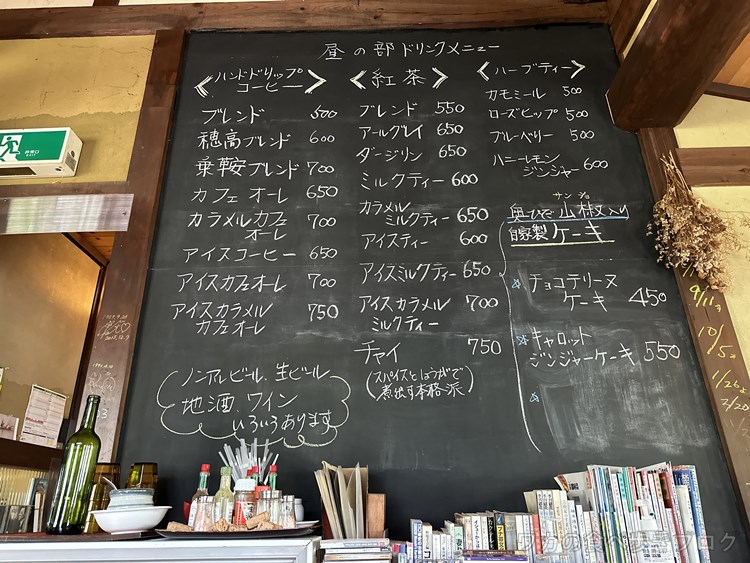 昼の部ドリンクメニュー
ハンドドリップ
コーヒー
ブレンド 500
穂高ブレンド 600
乗鞍ブレンド 700
カフェオーレ 650
カラメルカフェ
オーレ 700
アイスコーヒー 650
アイスカフェオーレ 700
アイスカラメル
カフェオーレ 750
ノンアルビール、生ビール
地酒、ワイン
いろいろあります
紅茶
ブレンド 550
アールグレイ 650
ダージリン 650
ミルクティー 600
カラメル
ミルクティー 650
アイスティー 600
アイスミルクティー 650
アイスカラメル
ミルクティー 700
チャイ 750
(スパイスとほうがで
煮出す本格派)
ハーブティー
カモミール 500
ローズヒップ 500
ブルーベリー 500
ハニーレモン
ジンジャー 600
サンショ
奥ひだ山椒入り
自家製ケーキ
☆ チョコテリーヌ
ケーキ 450
☆ キャロット
ジンジャーケーキ 550
☆
非常口
EXIT
9/11
10/5
1/26
2/20